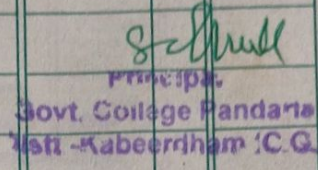 Principal
Govt. College Pandaria
Distt -Kabeerdham (C.G.